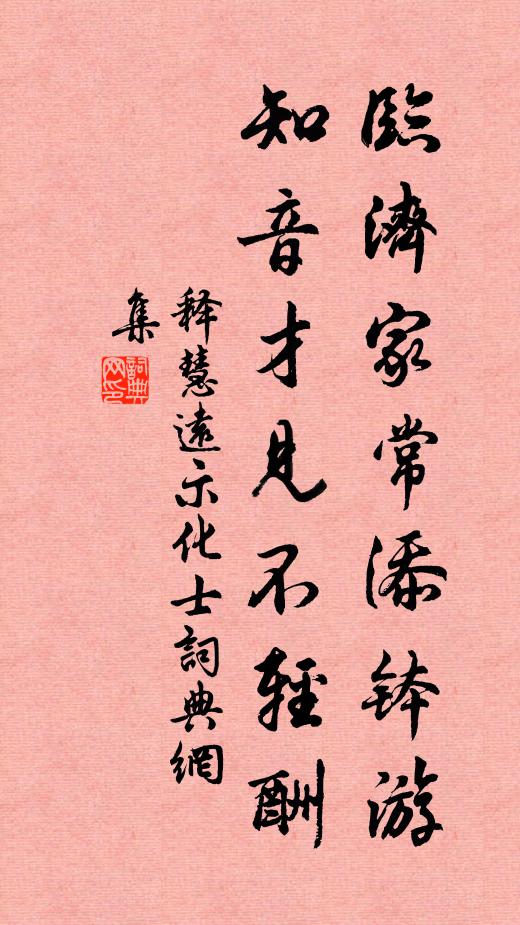 臨濟家常添缽游
知音才見不輕酬
释慧遠示化士詞典網
集
詞典網印